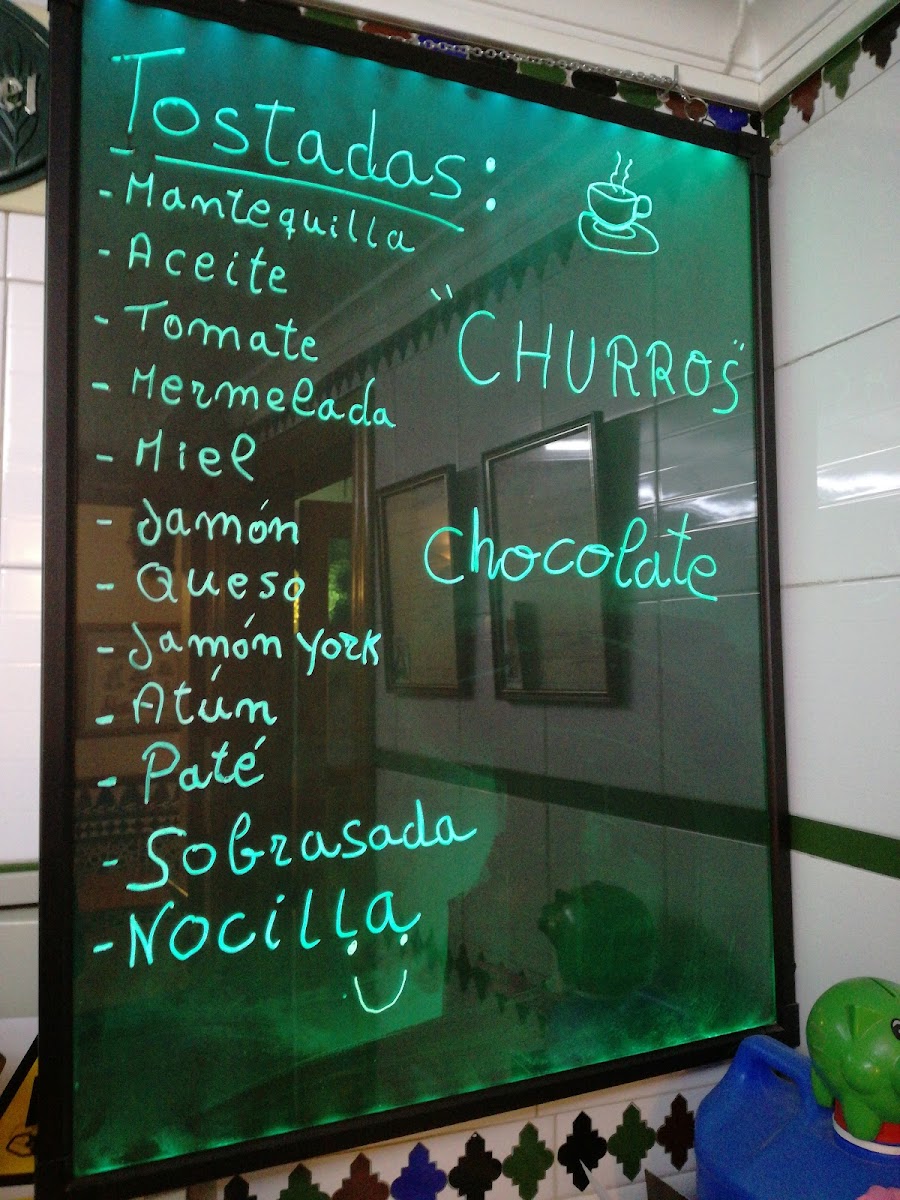 Tostadas:
- Mantequilla
- Aceite
- Tomate
- Mermelada
- Miel
- Jamón
- Queso
- Jamón York
- Atún
- Paté
- Sobrasada
- Nocilla
"CHURROS"
Chocolate